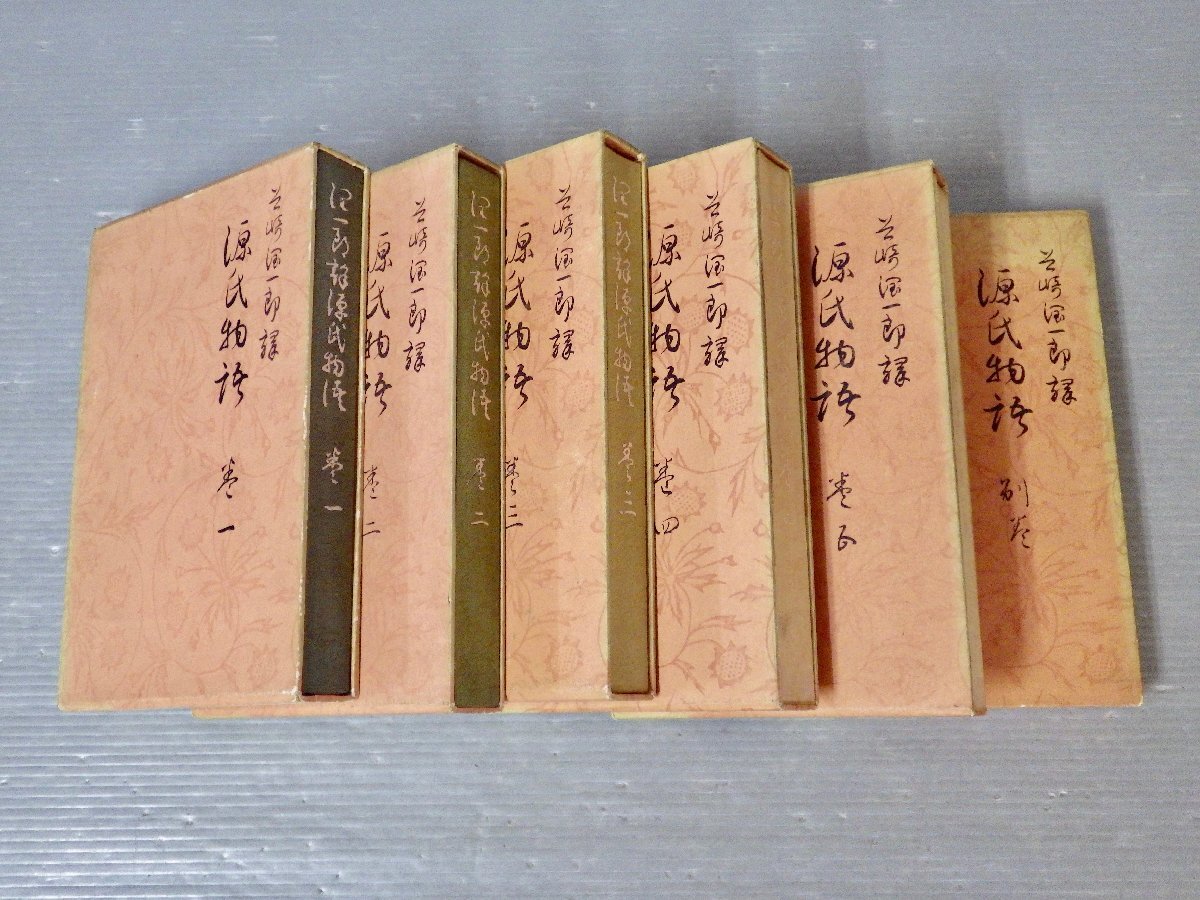 谷崎潤一郎譯
源氏物語
巻一
潤一郎譯源氏物語 巻一
谷崎潤一郎譯
源氏物語
巻二
潤一郎譯源氏物語 巻二
谷崎潤一郎譯
源氏物語
巻三
潤一郎譯源氏物語 巻三
谷崎潤一郎譯
源氏物語
巻四
谷崎潤一郎譯
源氏物語
巻五
谷崎潤一郎譯
源氏物語
別巻